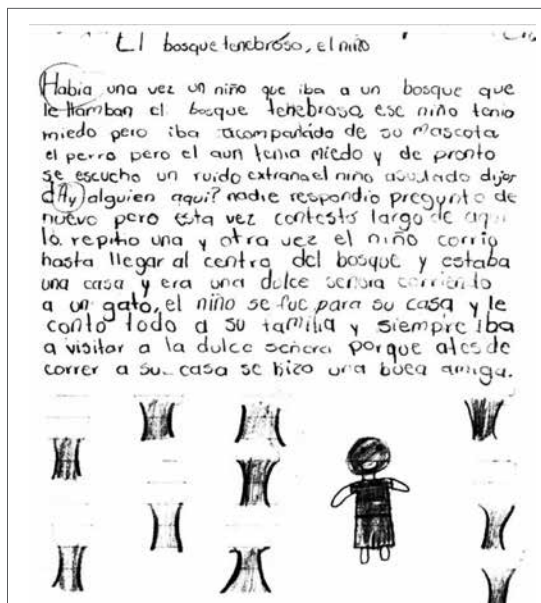 El bosque tenebroso, el niño
Había una vez un niño que iba a un bosque que
le llamban el bosque tenebroso ese niño tenio
miedo pero iba acompañado de su mascota
el perro pero el aun tenia miedo y de pronto
se escucho un ruido extraña el nino asustado dijo:
¿Ay alguien aqui? nadie respondio pregunto de
nuevo pero esta vez contesto largo de aqui
lo repitio una y otra vez el niño corrio
hasta llegar al centro del bosque y estaba
una casa y era una dulce señora corriendo
a un gato, el niño se fue para su casa y le
conto todo a su familia y siempre iba
a visitar a la dulce señora porque ates de
correr a su casa se hizo una buea amiga.